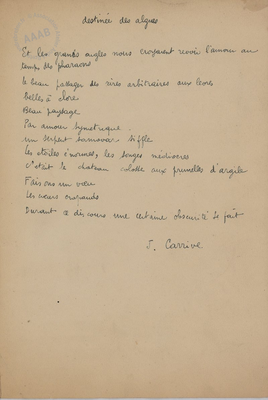 destinée des algues
AAAB
Et les grands aigles nous croyaient revoir l'amour au
temps des pharaons
le beau passage des rires arbitraires aux levres
belles à clore
Beau paysage
Par amour symetrique
un serpent samovar siffle
les étoiles énormes, les songes médiocres
C'était le chateau colosse aux prunelles d'argile
Faisons un vœu
Les vœux crapauds
Durant ce discours une certaine obscurité se fait
J. Carrive